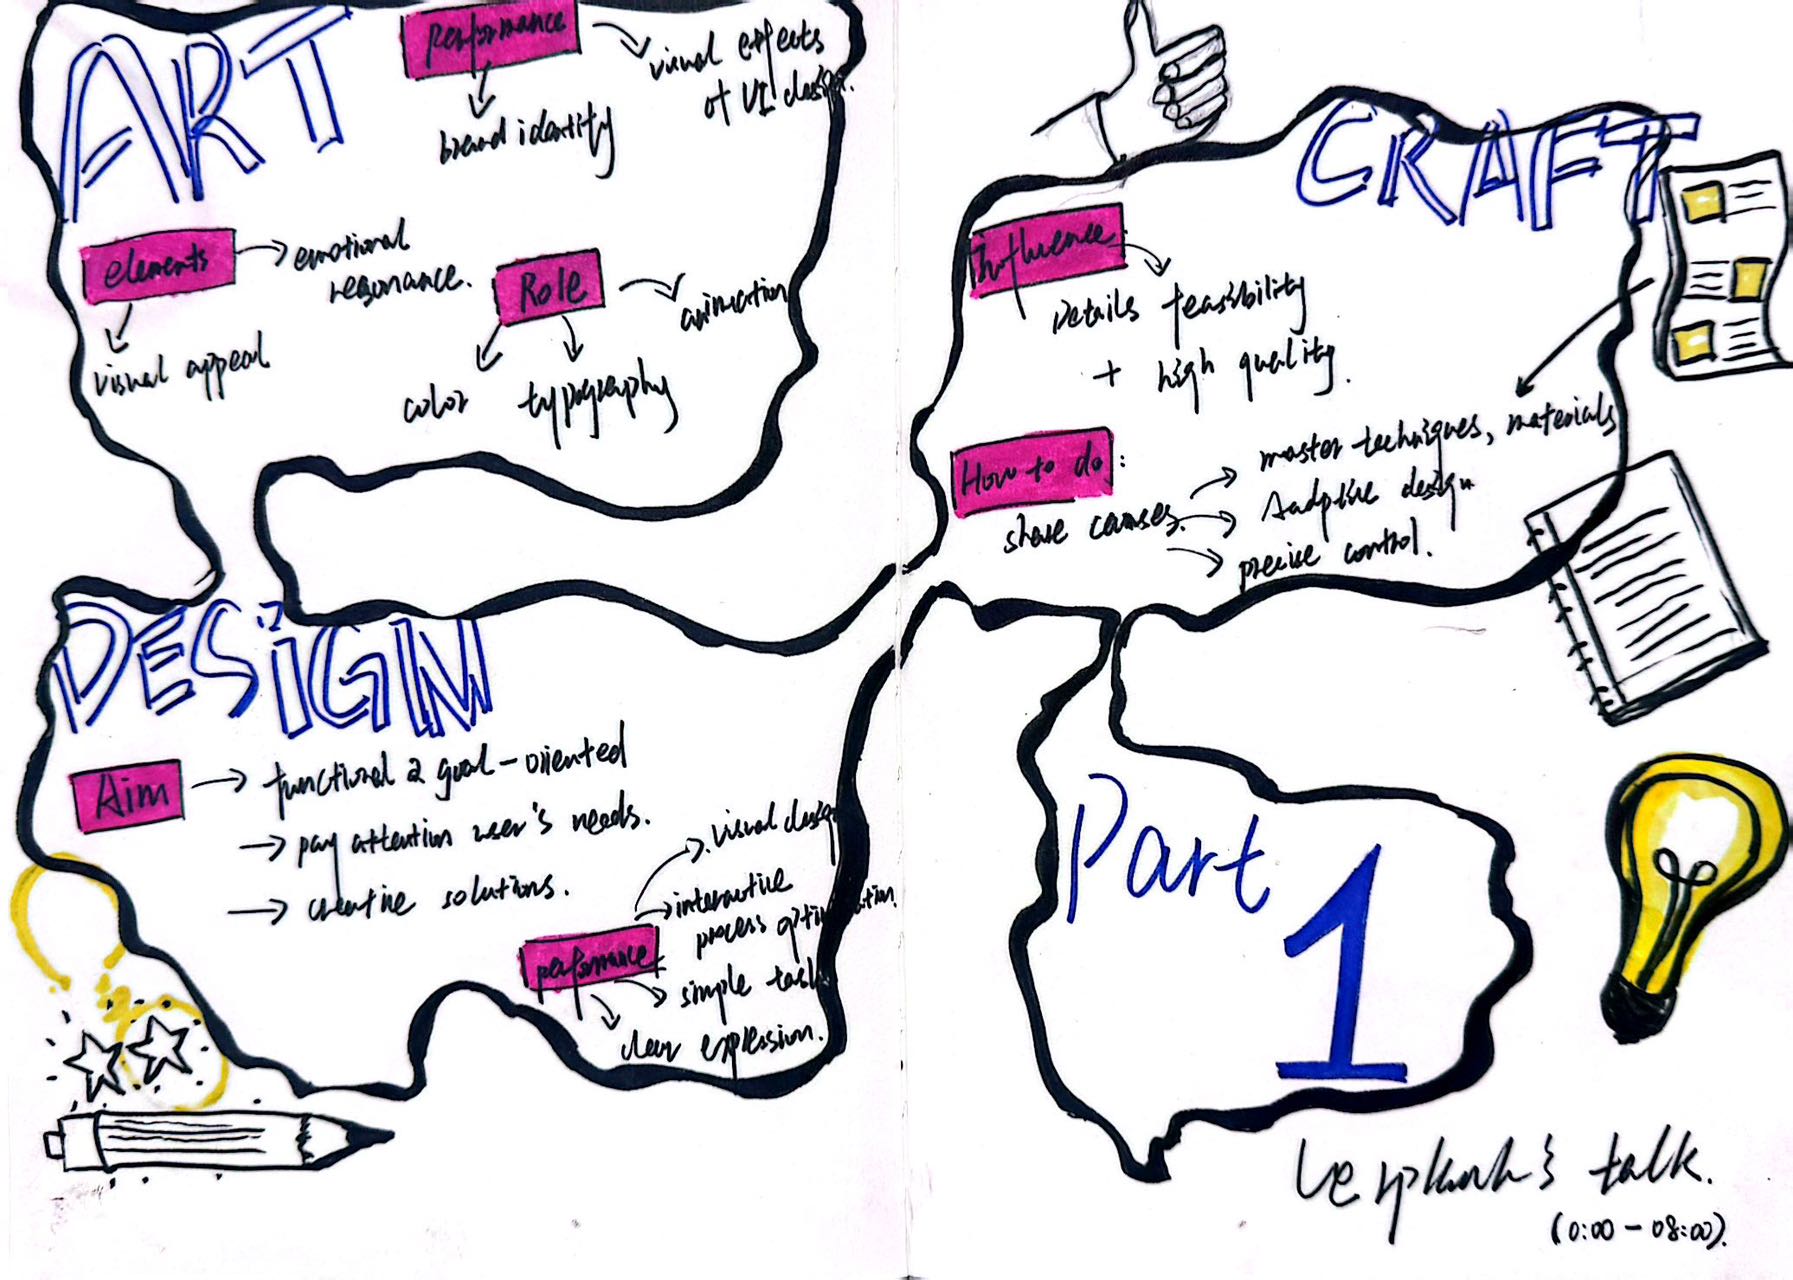 ART
performance
visual effects
of UI design.
brand identity
elements
emotional
resonance.
visual appeal
Role
animation
color
typography
CRAFT
Influence:
Details feasibility
+ high quality.
How to do:
master techniques, materials
share
design
precise control.
DESIGN
Aim
functional & goal-oriented
pay attention user's needs.
creative solutions.
visual design
interactive
process
performance
simple task
clear expression.
Part
1
talk.
(0:00-08:00).